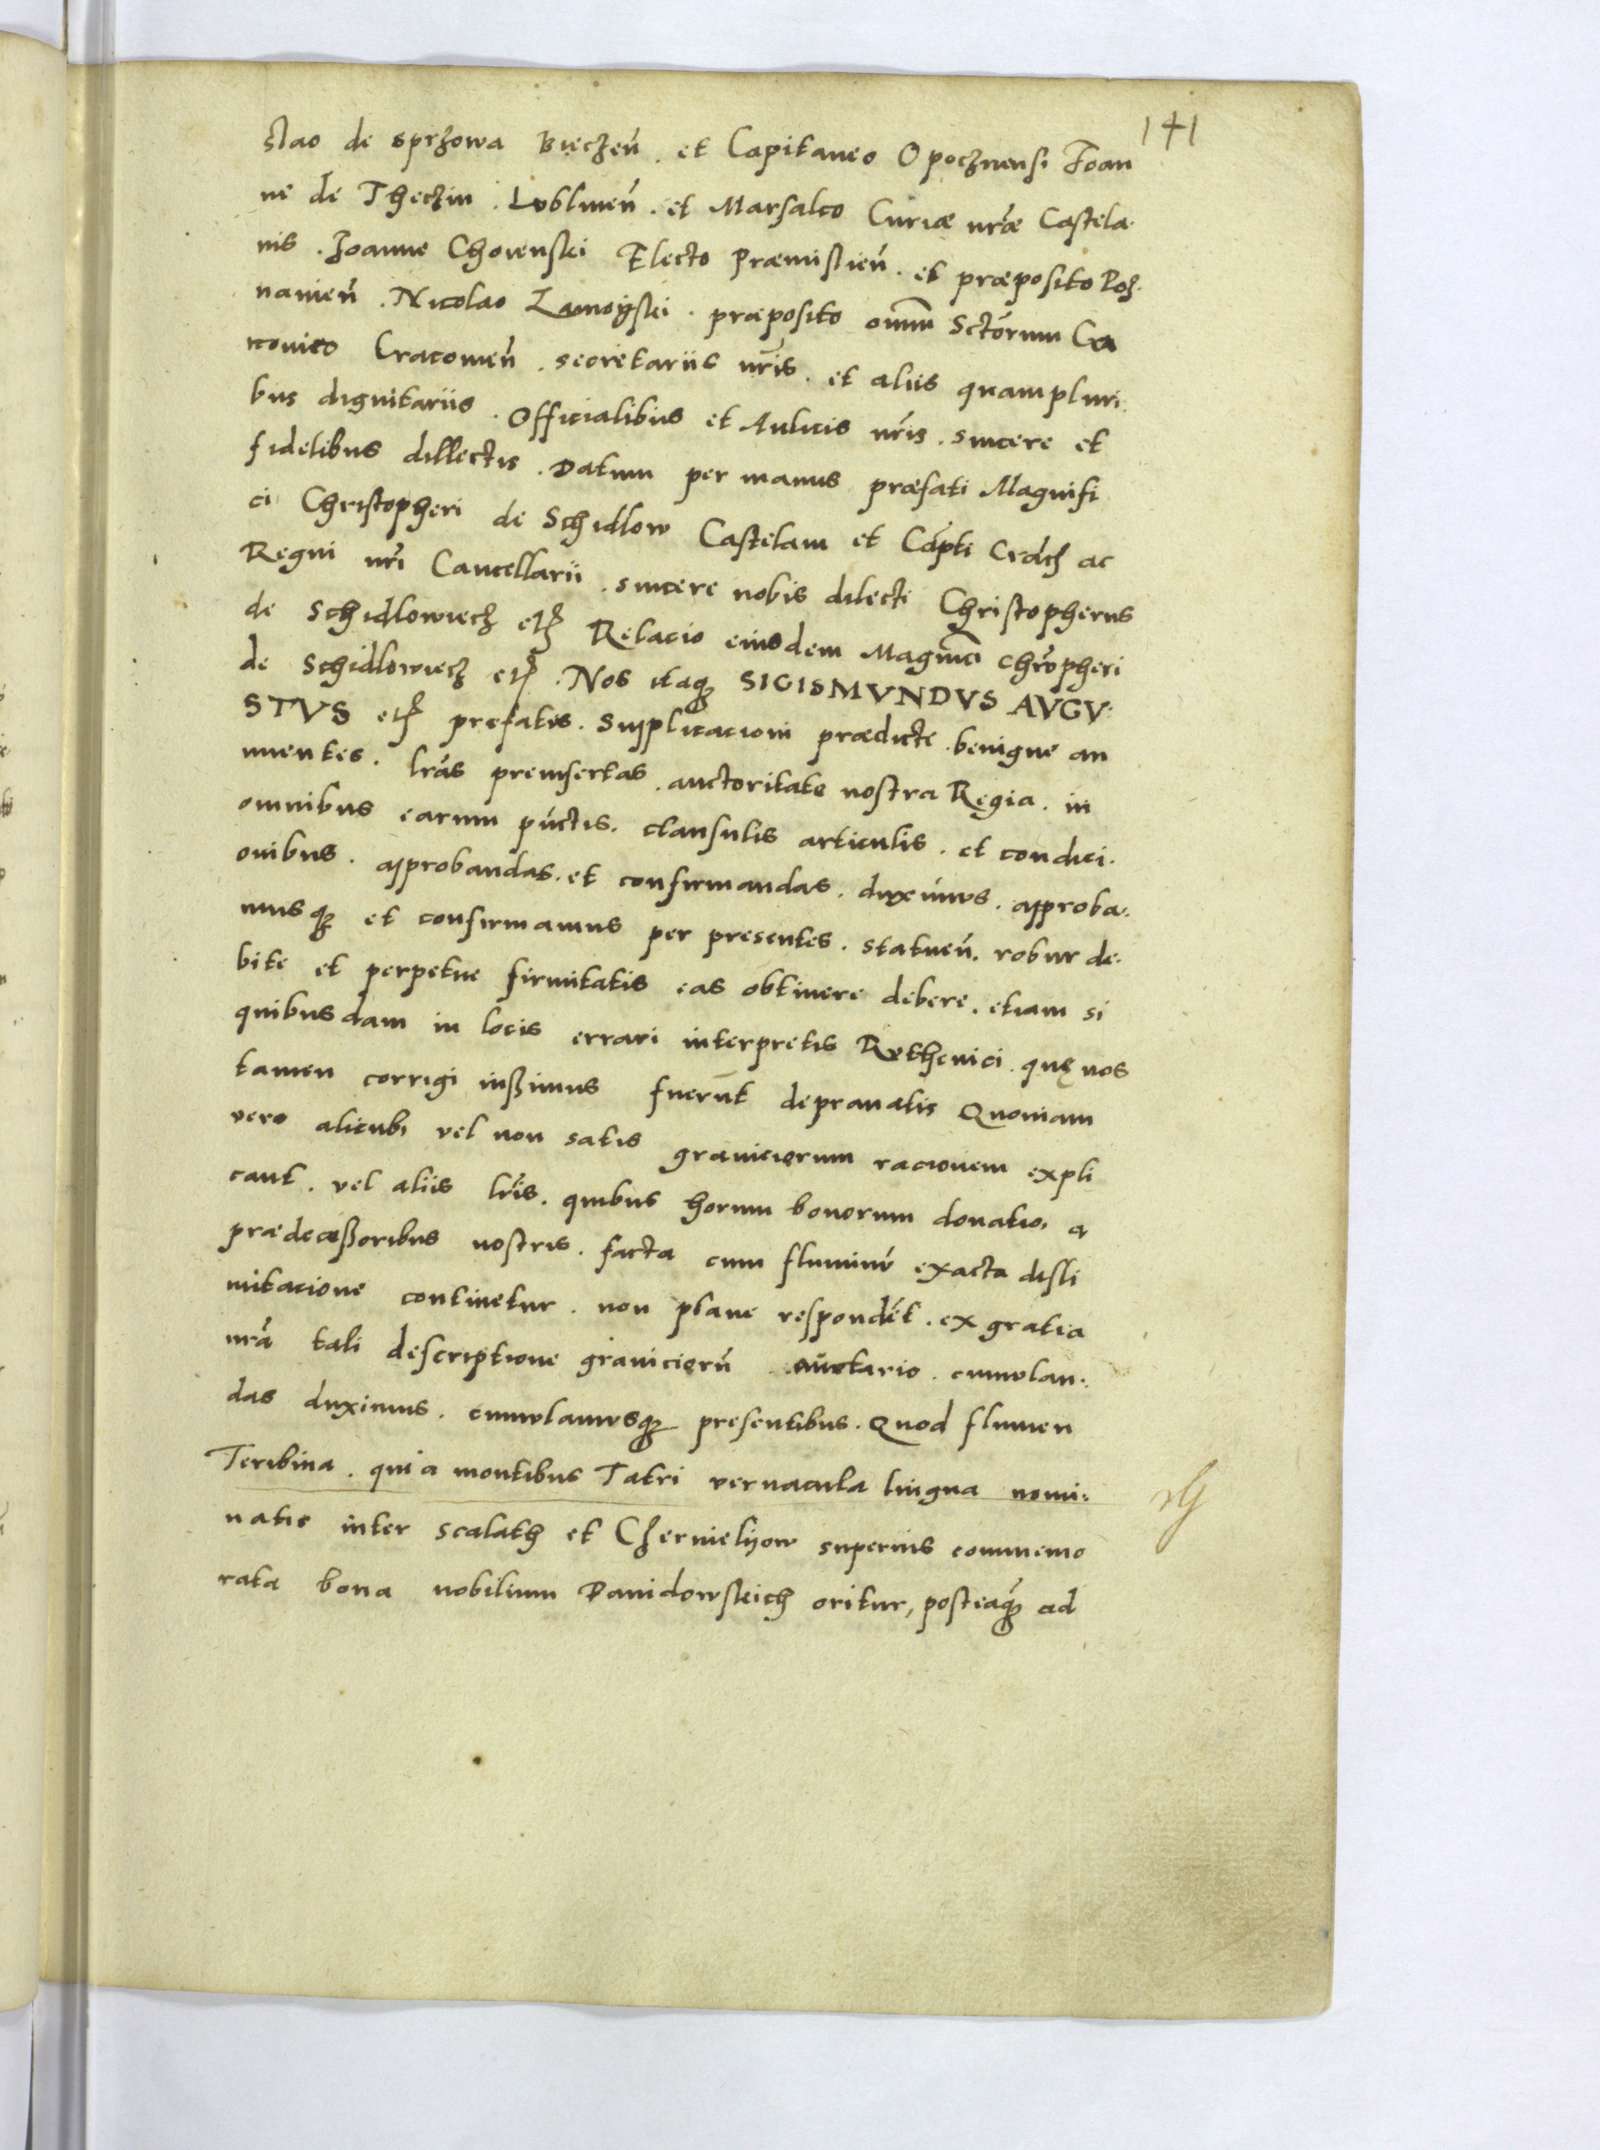 141
slao de Sprzowa Bieczeñ. et Capitaneo Opocznensi Joan
ne de Theczin. Lublineñ. et Marsalco Curiæ nr̃æ Castela-
nis. Joanne Choienski Electo Præmislieñ. et præposito Poz-
nanieñ. Nicolao Zamoyski. præposito om̃m Sctõrum Ca
nonico Cracovieñ. secretariis nr̃is. et aliis quampluri-
bus dignitariis. Officialibus et Aulicis nr̃is. sincere et
fidelibus dillectis. Datum per manus præfati Magnifi
ci Christopheri de Schidlow Castelani et Capti Crac̃ ac
Regni nr̃i Cancellarii. sincere nobis dilecti Christopherus
de Schidlowiecz etz Relacio eiusdem Magnĩci chrõpheri
de Schidlowiecz etz. Nos itaqz SIGISMVNDVS AVGV-
STVS etz prefatis. Supplicacioni prædicte. benigne an
nuentes. lrãs preinsertas. auctoritate nostra Regia. in
omnibus earum pũctis. clausulis articulis. et condici-
onibus. approbandas. et confirmandas. duximus. approba-
musqz et confirmamus per presentes. statueñ. robur de-
bite et perpetue firmitatis eas obtinere debere. etiam si
quibusdam in locis errari interpretis Ruthenici. quę nos
tamen corrigi iussimus fuerũt depravatis Quoniam
vero alicubi vel non satis graniciorum racionem expli
cant. vel aliis lr̃is. quibus horum bonorum donatio. a
prædecessoribus nostris. facta cum fluminũ exacta disli
mitacione continetur. non plane respondẽt. ex gratia
nrã tali descriptione graniciorũ auctario. cumulan-
das duximus. cumulamusqz presentibus. Quod flumen
Teribina. qui a montibus Tatri vernacula lingua nomi-
natis inter Scalath et Czernieliow superius commemo
rata bona nobilium Davidowskich oritur, posteaqz̃ ad